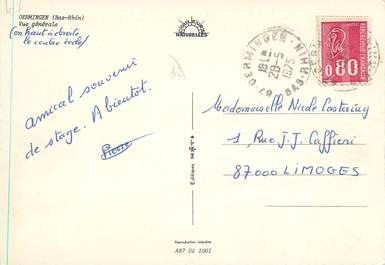 OERMINGEN (Bas-Rhin)
Vue générale
(en haut à droite,
le centre école)
NATURELLES
amical souvenir
de stage. A bientôt.
Pierre
OERMINGEN
18H
28-5
1975
67 BAS-RHIN
0,80
Mademoiselle Nicole
1 Rue J.J. Caffieri
87000 LIMOGES
Reproduction interdite
A67 06 1001